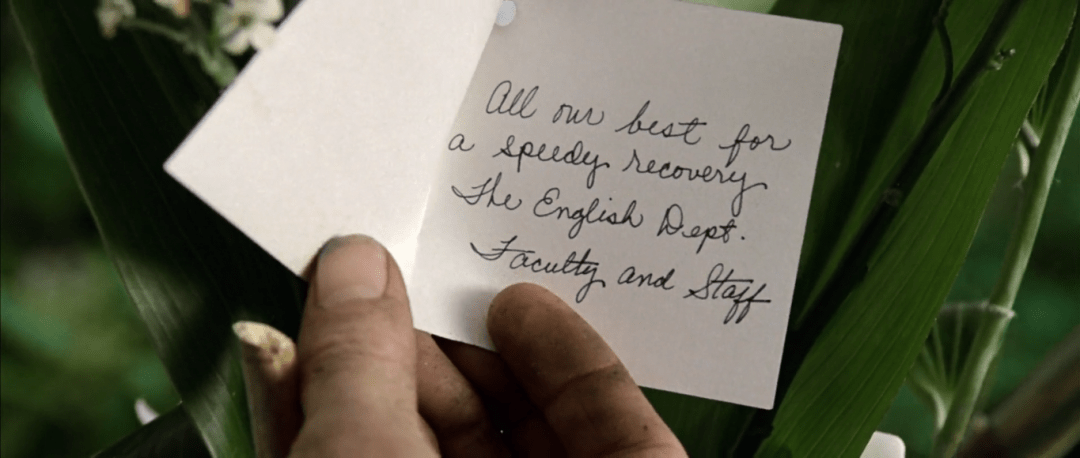 All our best for
a speedy recovery
The English Dept.
Faculty and Staff